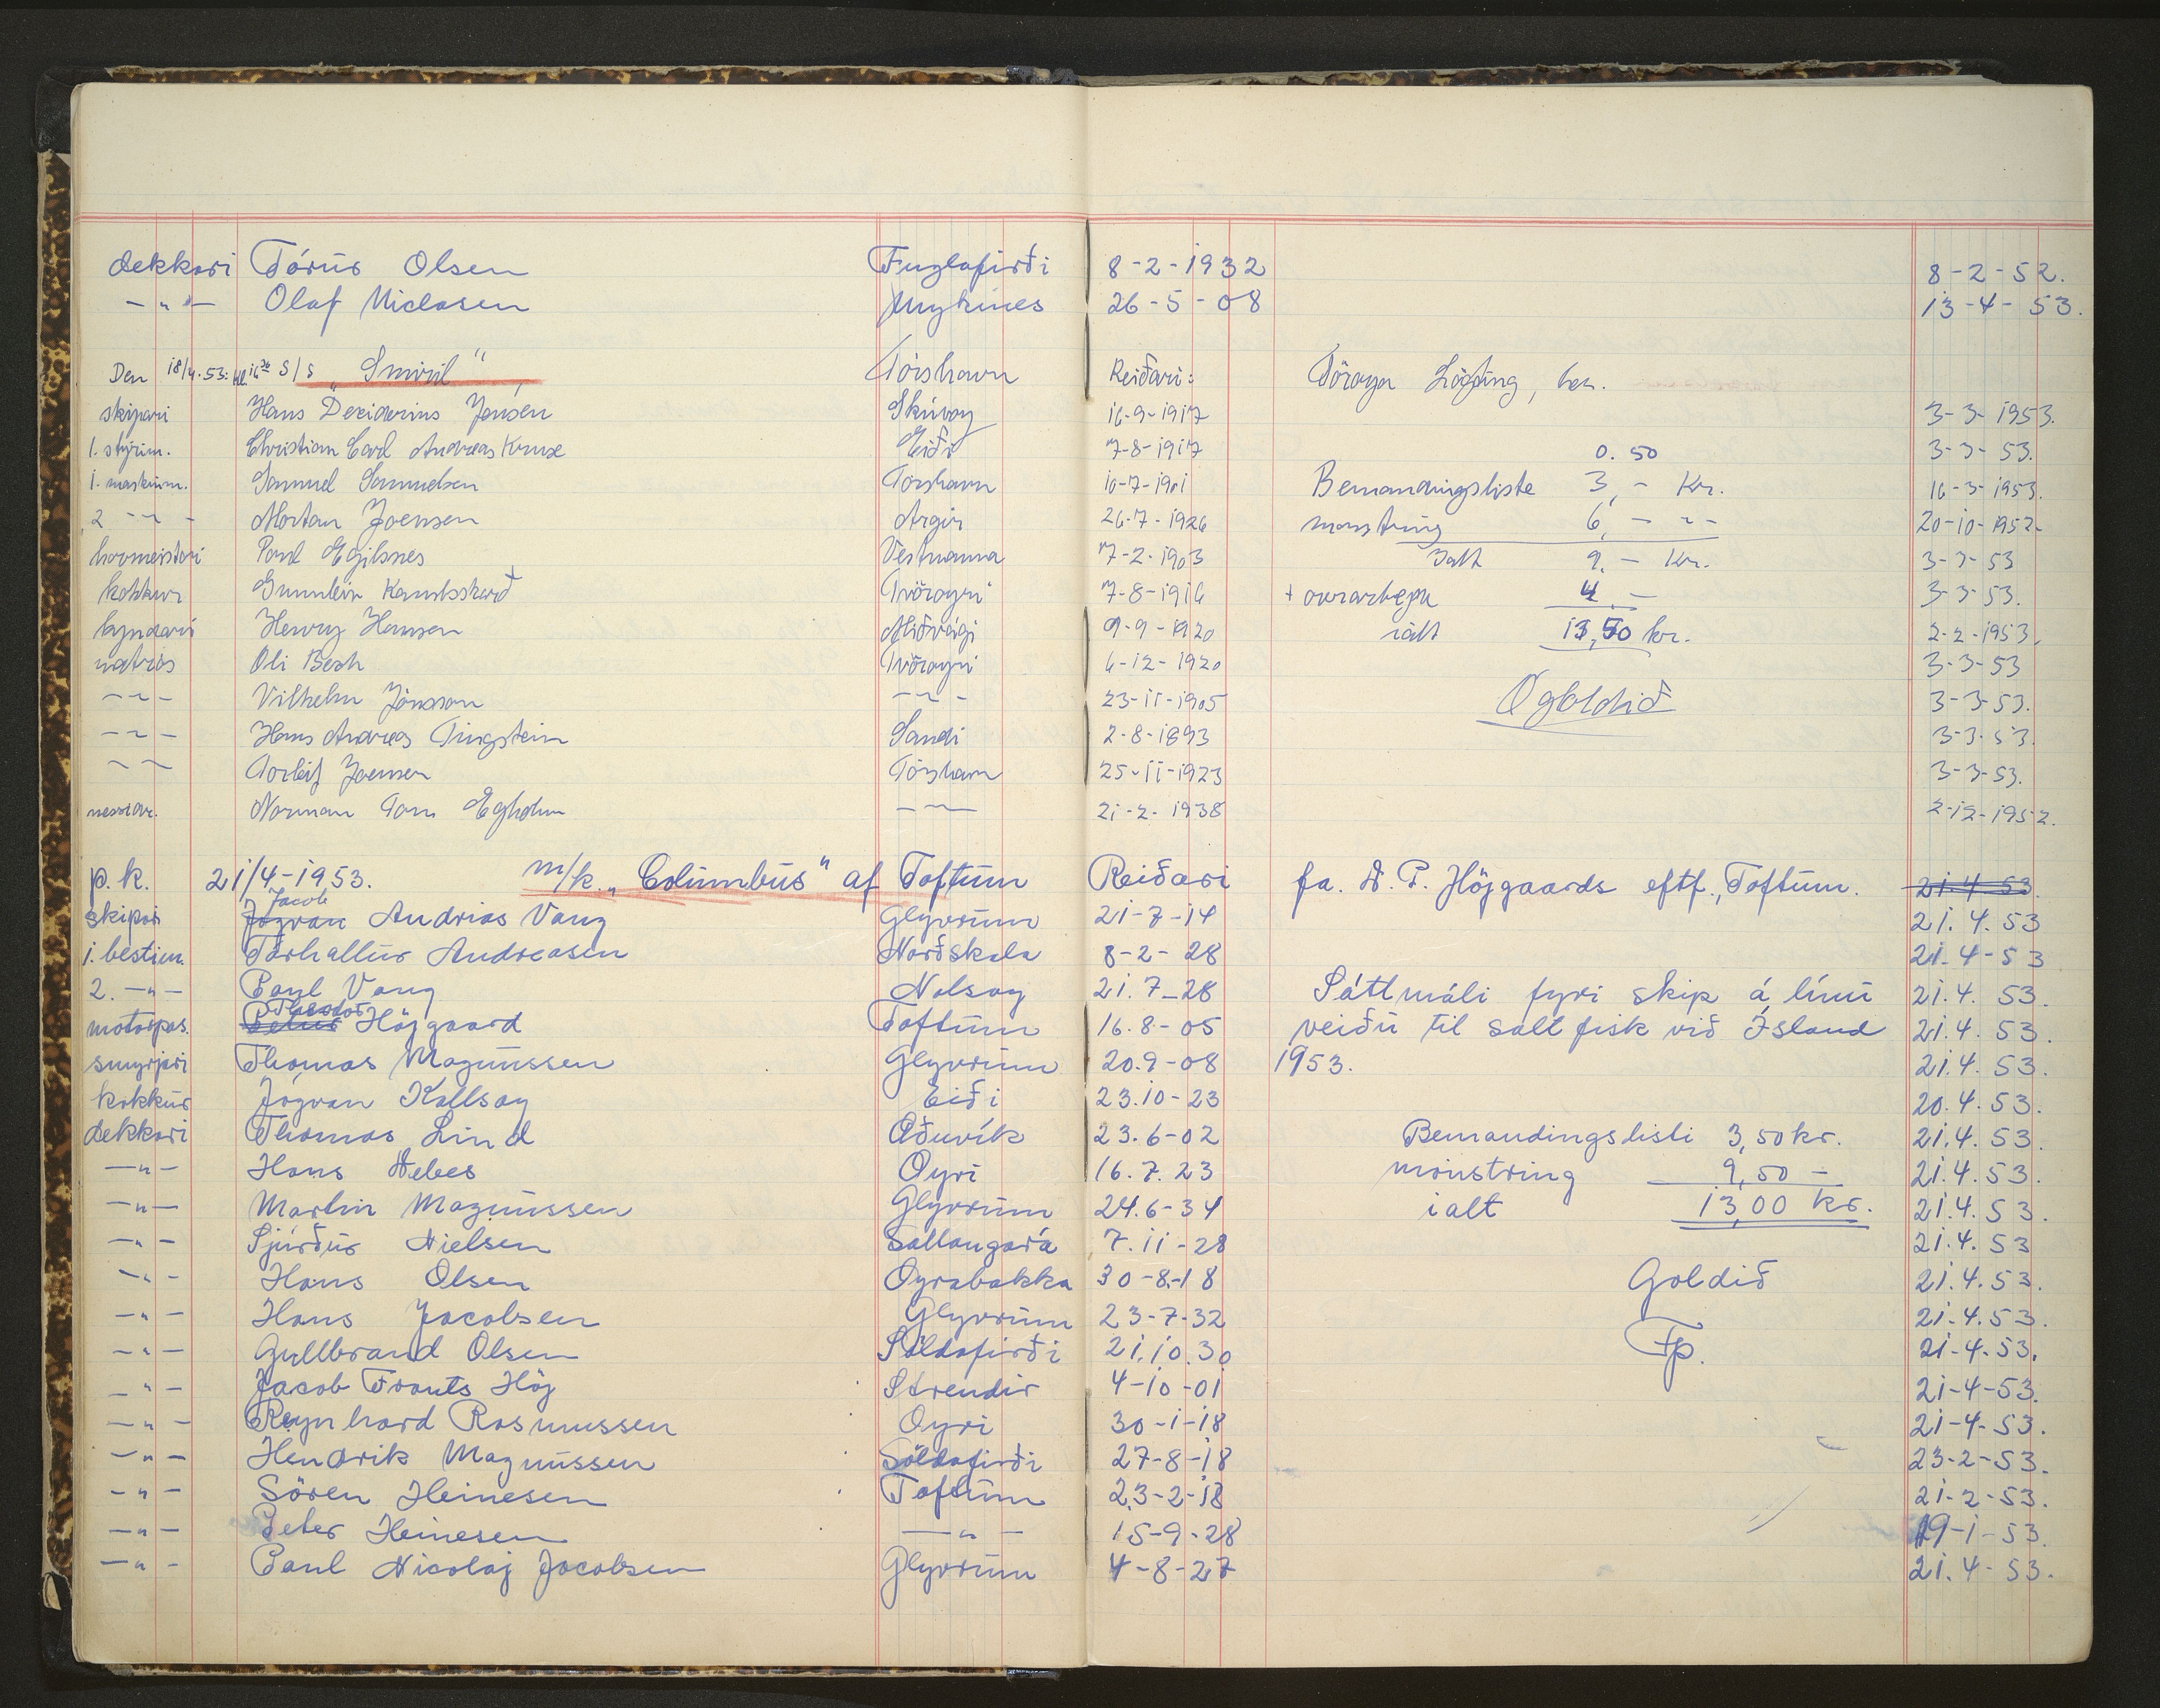 dekkari Tórur Olsen Fuglafirði 8-2-1932 8-2-52.
-"- Olaf Niclasen Mykines 26-5-08 13-4-53.
Den 18/4.53: kl. S/s "Smiril" Tórshavn Reiðari: Föroya Lögting, her.
skipari Hans Deziderius Jensen Skúvoy 16-9-1917 3-3-1953.
1. stýrim. Christian Carl Andreas Kruse Eiði 7-8-1917 3-3-53.
0.50
1. maskinm. Samuel Samuelsen Tórshavn 10-7-1901 Bemandingsliste 3,- Kr. 16-3-1953.
2 -"- Mortan Joensen Argir 26-7-1926 mønstring 6,- -"- 20-10-1952
hovmeistari Poul Egilsnes Vestmanna 7-2-1903 Ialt 9,- Kr. 3-3-53
kokkur Gunnleir Kambskarð Tvöroyri 7-8-1916 + overarbejde 4,- 3-3-53.
kyndari Henry Hansen Miðvági 9-9-1920 ialt 13,50 kr. 2-2-1953.
matrós Oli Besk Tvöroyri 6-12-1920 3-3-53
-"- Vilhelm Jónsson -"- 23-11-1905 Ógoldið 3-3-53.
-"- Hans Andreas Tingstein Sandi 2-8-1893 3-3-53.
-"- Torleif Joensen Tórshavn 25-11-1923 3-3-53.
messedr. Norman Tom Egholm -"- 21-2-1938 2-12-1952.
p.k. 21/4-1953. m/k. "Columbus" af Toftum Reiðari fa. N. P. Höjgaards eftf., Toftum. 21.4.53.
Jacob
skipari Jógvan Andrias Vang Glyvrum 21-7-14 21.4.53
1. bestm. Tórhallur Andreasen Norðskála 8-2-28 21-4-53
2. -"- Paul Vang Nolsoy 21.7-28 Sáttmáli fyri skip á línu 21.4.53.
Theodor
motorpas. Petur Höjgaard Toftum 16.8-05 veiðu til saltfisk við Ísland 21.4.53.
smyrjari Thomas Magnussen Glyvrum 20.9-08 1953. 21.4.53.
kokkur Jógvan Kallsoy Eiði 23.10-23 20.4.53.
dekkari Thomas Lind Æðuvík 23.6-02 Bemandingslisti 3,50 kr. 21.4.53.
-"- Hans Debes Oyri 16.7.23 mönstring 9,50 - 21.4.53.
-"- Martin Magnussen Glyvrum 24.6-34 ialt 13,00 kr. 21.4.53.
-"- Sjúrður Nielsen Saltangará 7.11-28 21.4.53
-"- Hans Olsen Oyrabakka 30-8-18 Goldið 21.4.53.
-"- Hans Jacobsen Glyvrum 23-7-32 21-4.53.
-"- Gullbrand Olsen Söldafirði 21.10.30 Fp. 21-4-53.
-"- Jacob Frants Höj Strendir 4-10-01 21-4-53.
-"- Reynhard Rasmussen Oyri 30-1-18 21-4-53.
-"- Hendrik Magnussen Söldafirði 27-8-18 23-2-53.
-"- Sören Heinesen Toftum 23-2-18 21-2-53.
-"- Peter Heinesen -"- 15-9-28 19-1-53.
-"- Paul Nicolaj Jacobsen Glyvrum 4-8-27 21.4-53.